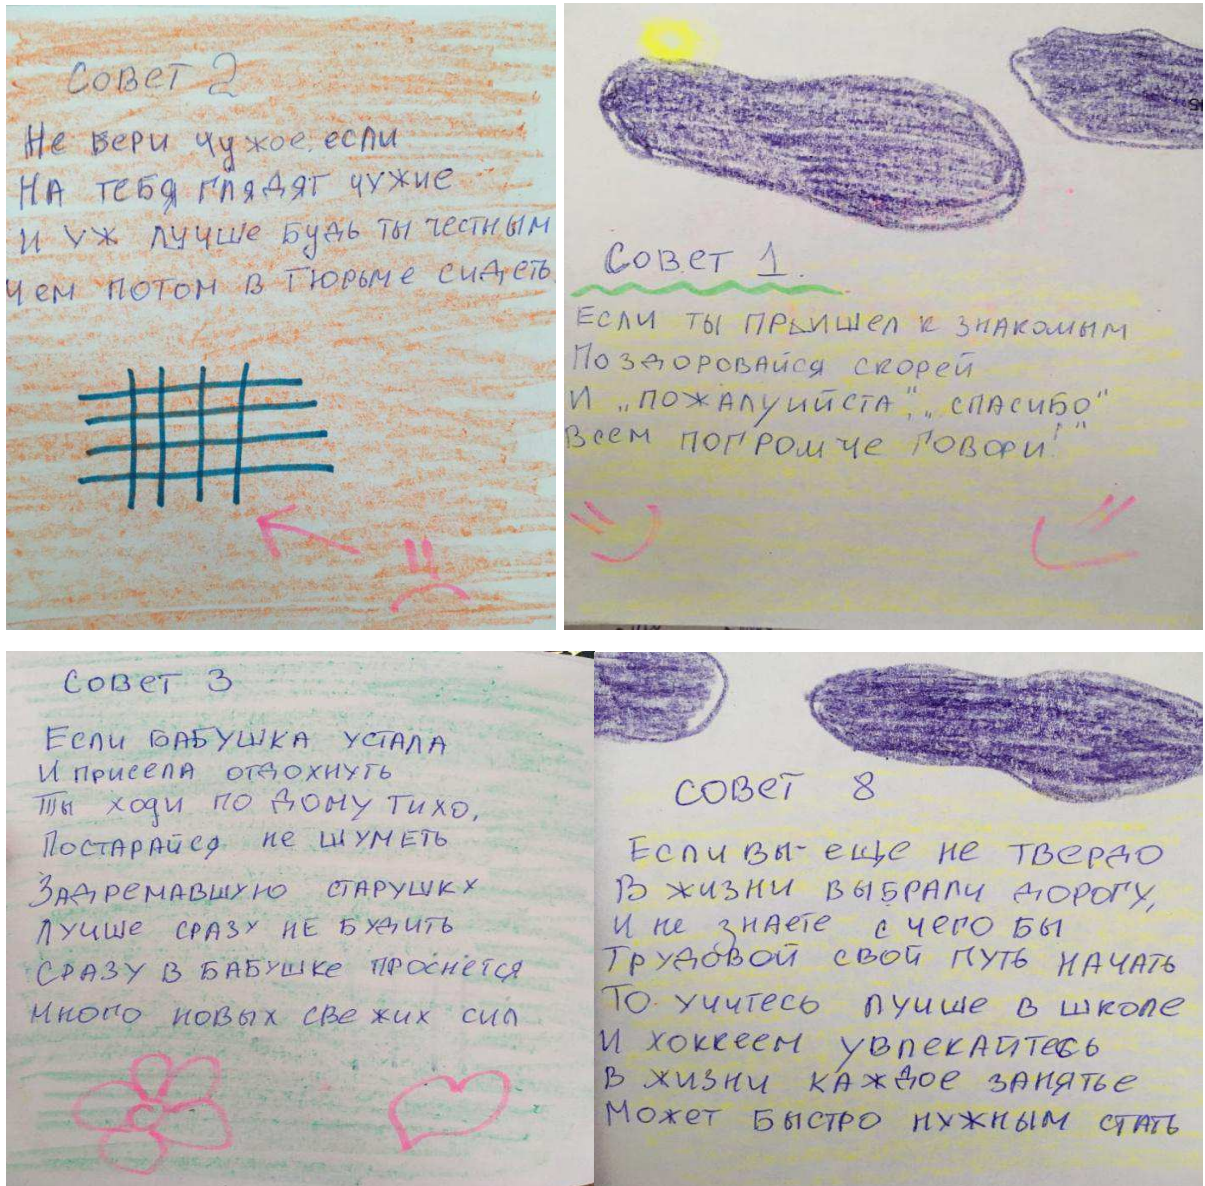 Совет 2
Не бери чужое, если
На тебя глядят чужие
И уж лучше будь ты честным
Чем потом в тюрьме сидеть
Совет 1.
Если ты пришел к знакомым
Поздоровайся скорей
И „пожалуийста", „спасибо"
Всем погромче говори!"
Совет 3
Если бабушка устала
И присела отдохнуть
Ты ходи по дому тихо,
Постарайся не шуметь
Задремавшую старушку
Лучше сразу не будить
Сразу в бабушке проснется
Много новых свежих сил
Совет 8
Если вы еще не твердо
В жизни выбрали дорогу,
И не знаете с чего бы
Трудовой свой путь начать
То учитесь лучше в школе
И хоккеем увлекайтесь
В жизни каждое занятье
Может быстро нужным стать